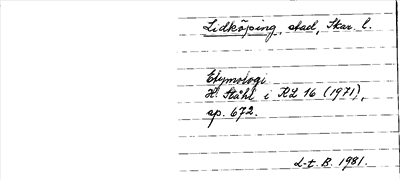 Lidköping, stad, Skar. l.
Etymologi
H. Ståhl i RL 16 (1971),
sp. 672.
L-t. B. 1981.